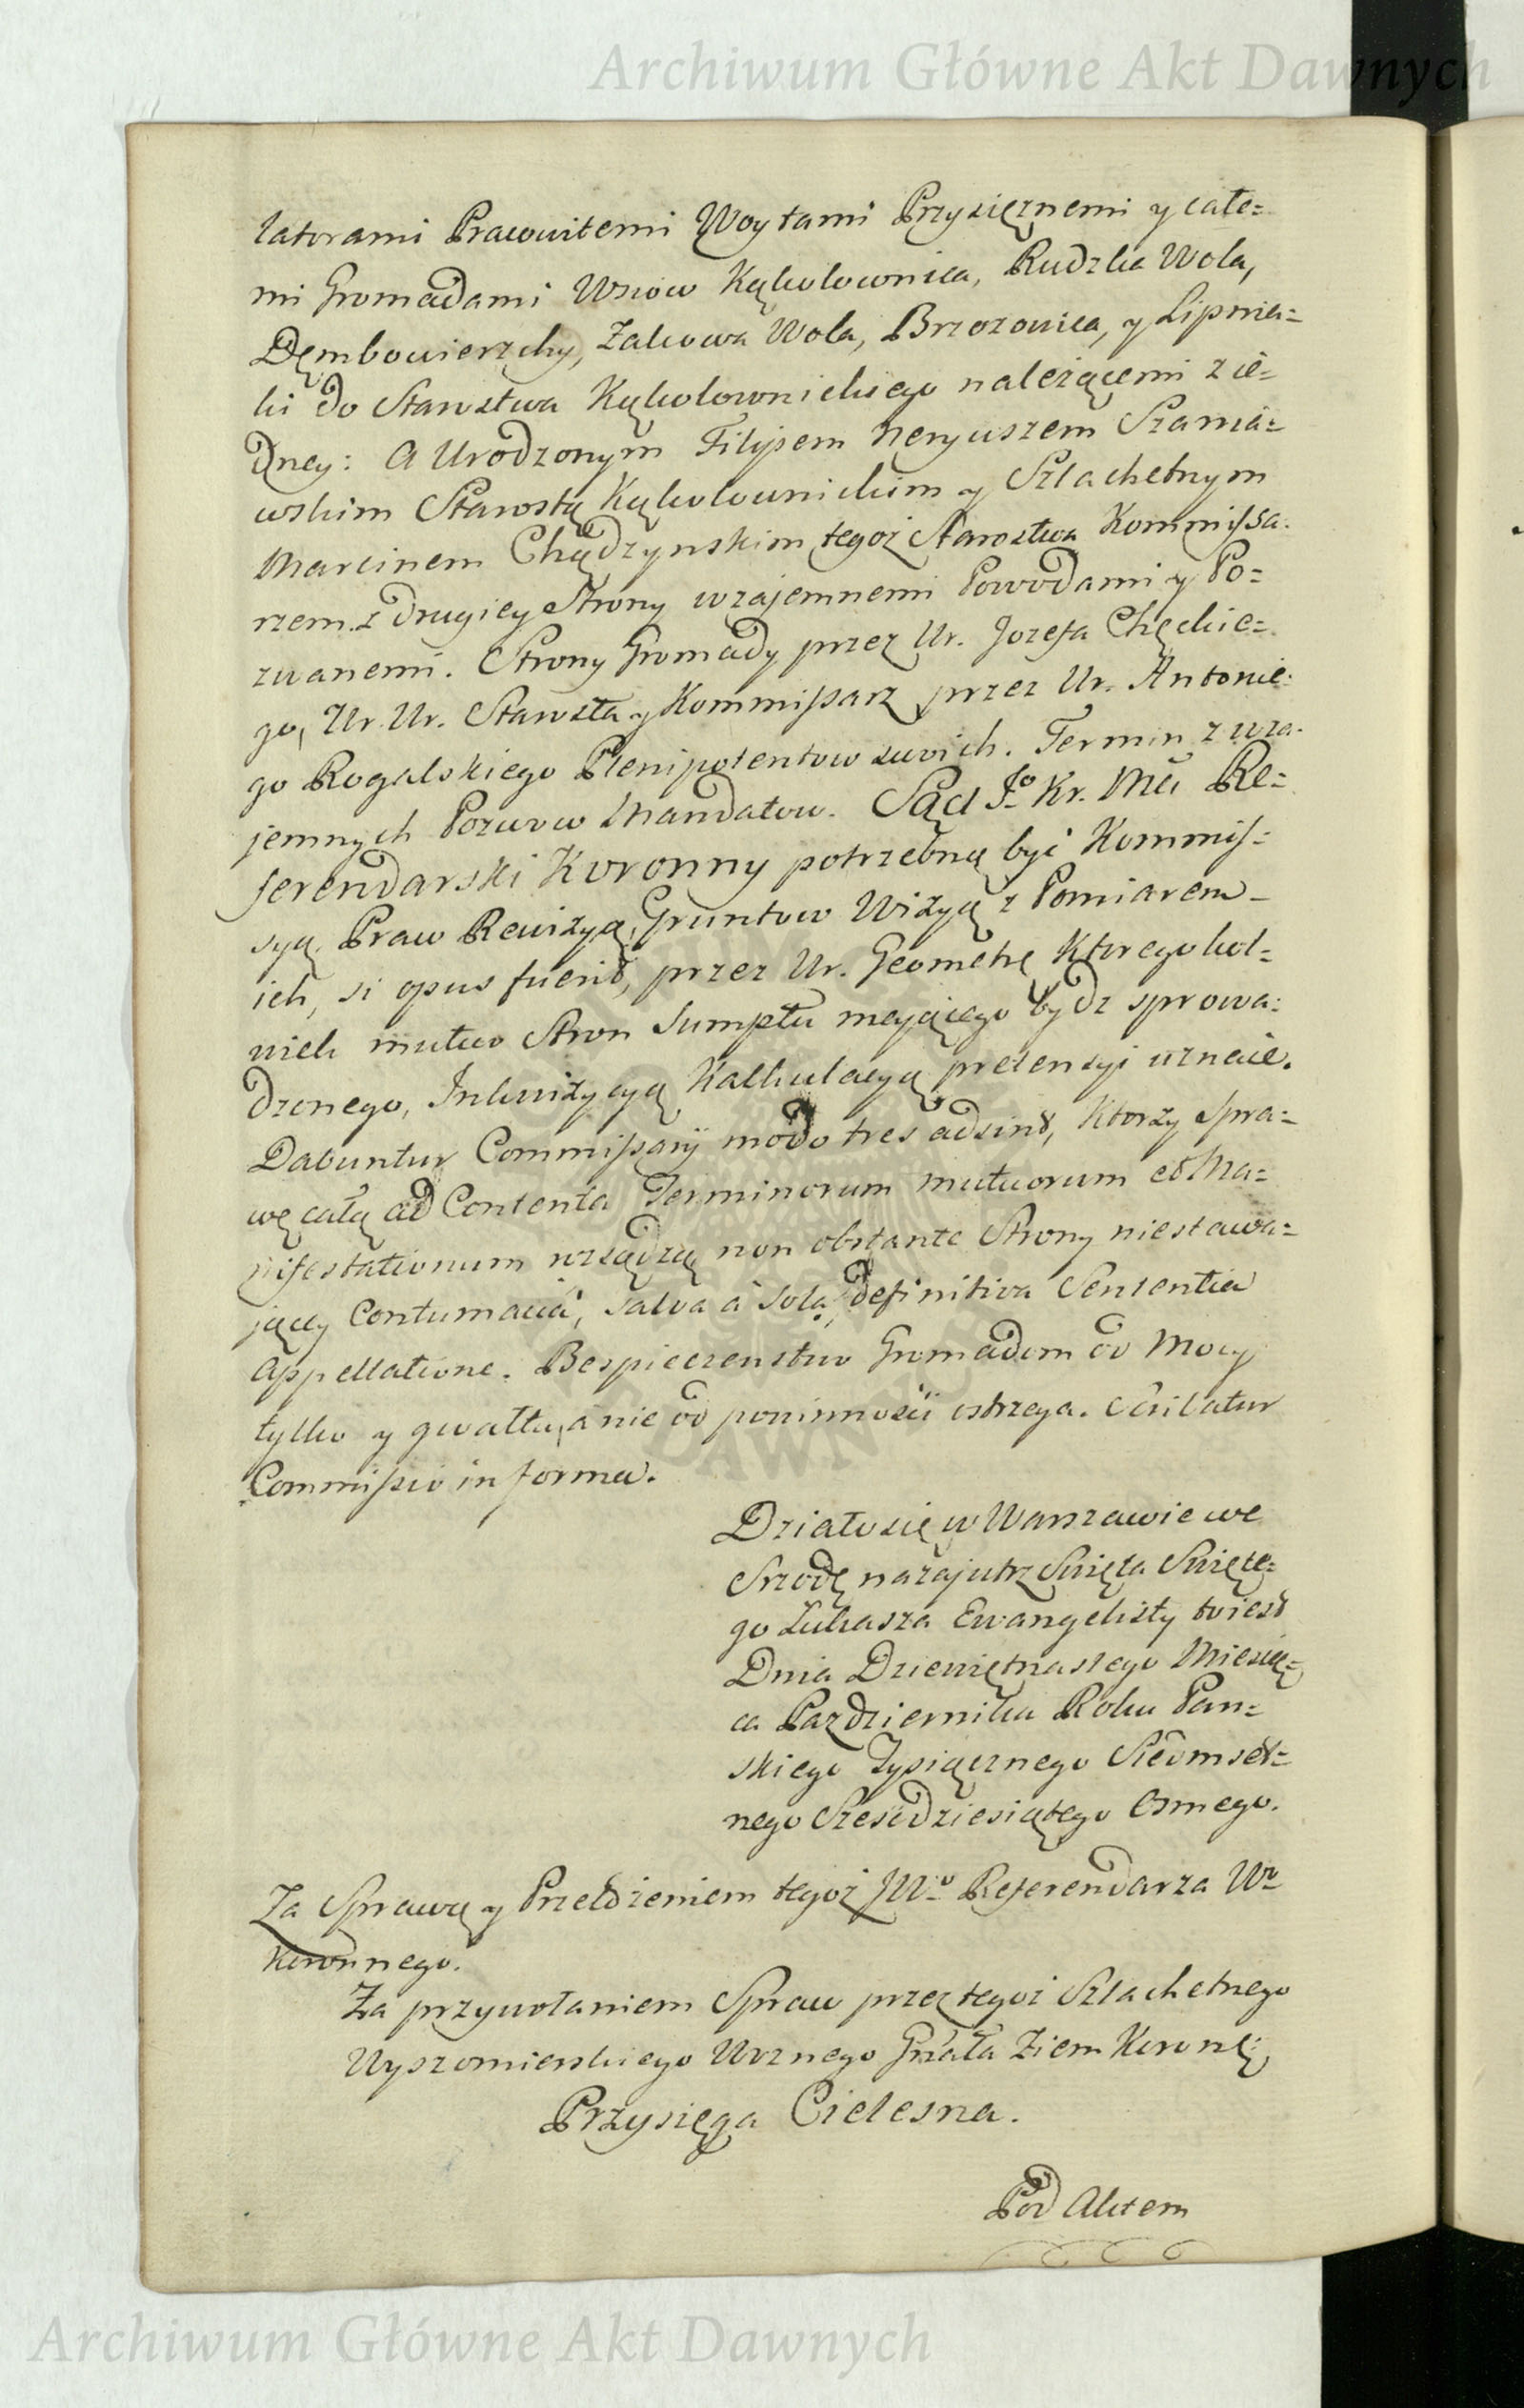 Archiwum Główne Akt Dawnych
latorami Pracowitemi Woytami Przysięznemi y całe=
mi Gromadami Wsiow Kąkolownica, Rudzka Wola,
Dęmbowierzchy, Zakowa Wola, Brzozowica, y Lipnia=
ki do Starostwa Kąkolownickiego należącemi z ie=
dney: A Urodzonym Filipem Neryuszem Szania=
wskim Starostą Kąkolownickim y Szlachetnym
Marcinem Chądzynskim tegoż Starostwa Kommissa-
rzem z drugiey Strony wzajemnemi Powodami y Po=
zwanemi. Strony Gromady przez Ur. Jozefa Chęckie=
go, Ur. Ur. Starosta y Kommissarz przez Ur. Antonie-
go Rogalskiego Plenipotentow swoich. Termin z wza-
jemnych Pozwow Mandatow. Sąd Jo Kr. Mci Re=
ferendarski Koronny potrzebną być Kommis=
syą, Praw Rewizyą, Gruntow Wizyą z Pomiarem
ich, si opus fuerit, przez Ur. Geometrę Ktoregokol=
wiek mutuo Stron Sumptu mającego bydz sprowa=
dzonego, Inkwizycyą Kalkulacyą pretensyi uznaie.
Dabuntur Commissarij modo tres adsint, Ktorzy Spra=
wę całą ad Contenta Terminorum mutuorum et Ma=
nifestationum rozsądzą non obstante Strony niestawa=
jącey Contumacia, salva a sola definitiva Sententia
Appellatione. Bespieczenstwo Gromadom od Mocy
tylko y gwałtu, a nie od powinnosci ostrzega. Scribatur
Commissio in forma.
Działo się w Warszawie we
Srzodę nazajutrz Swięta Swięte=
go Łukasza Ewangelisty to iest
Dnia Dziewiętnastego Miesią=
ca Pazdziernika Roku Pan=
skiego Tysiącznego Siedmset=
nego Szescdziesiątego Osmego.
Za Sprawą y Przełożeniem tegoż JWo Referendarza Wo
Koronnego.
Za przywołaniem Spraw przez tegoż Szlachetnego
Wyszomierskiego Woznego Gnała Ziem Koronę:
Przysięga Cielesna.
Pod Aktem
Archiwum Główne Akt Dawnych